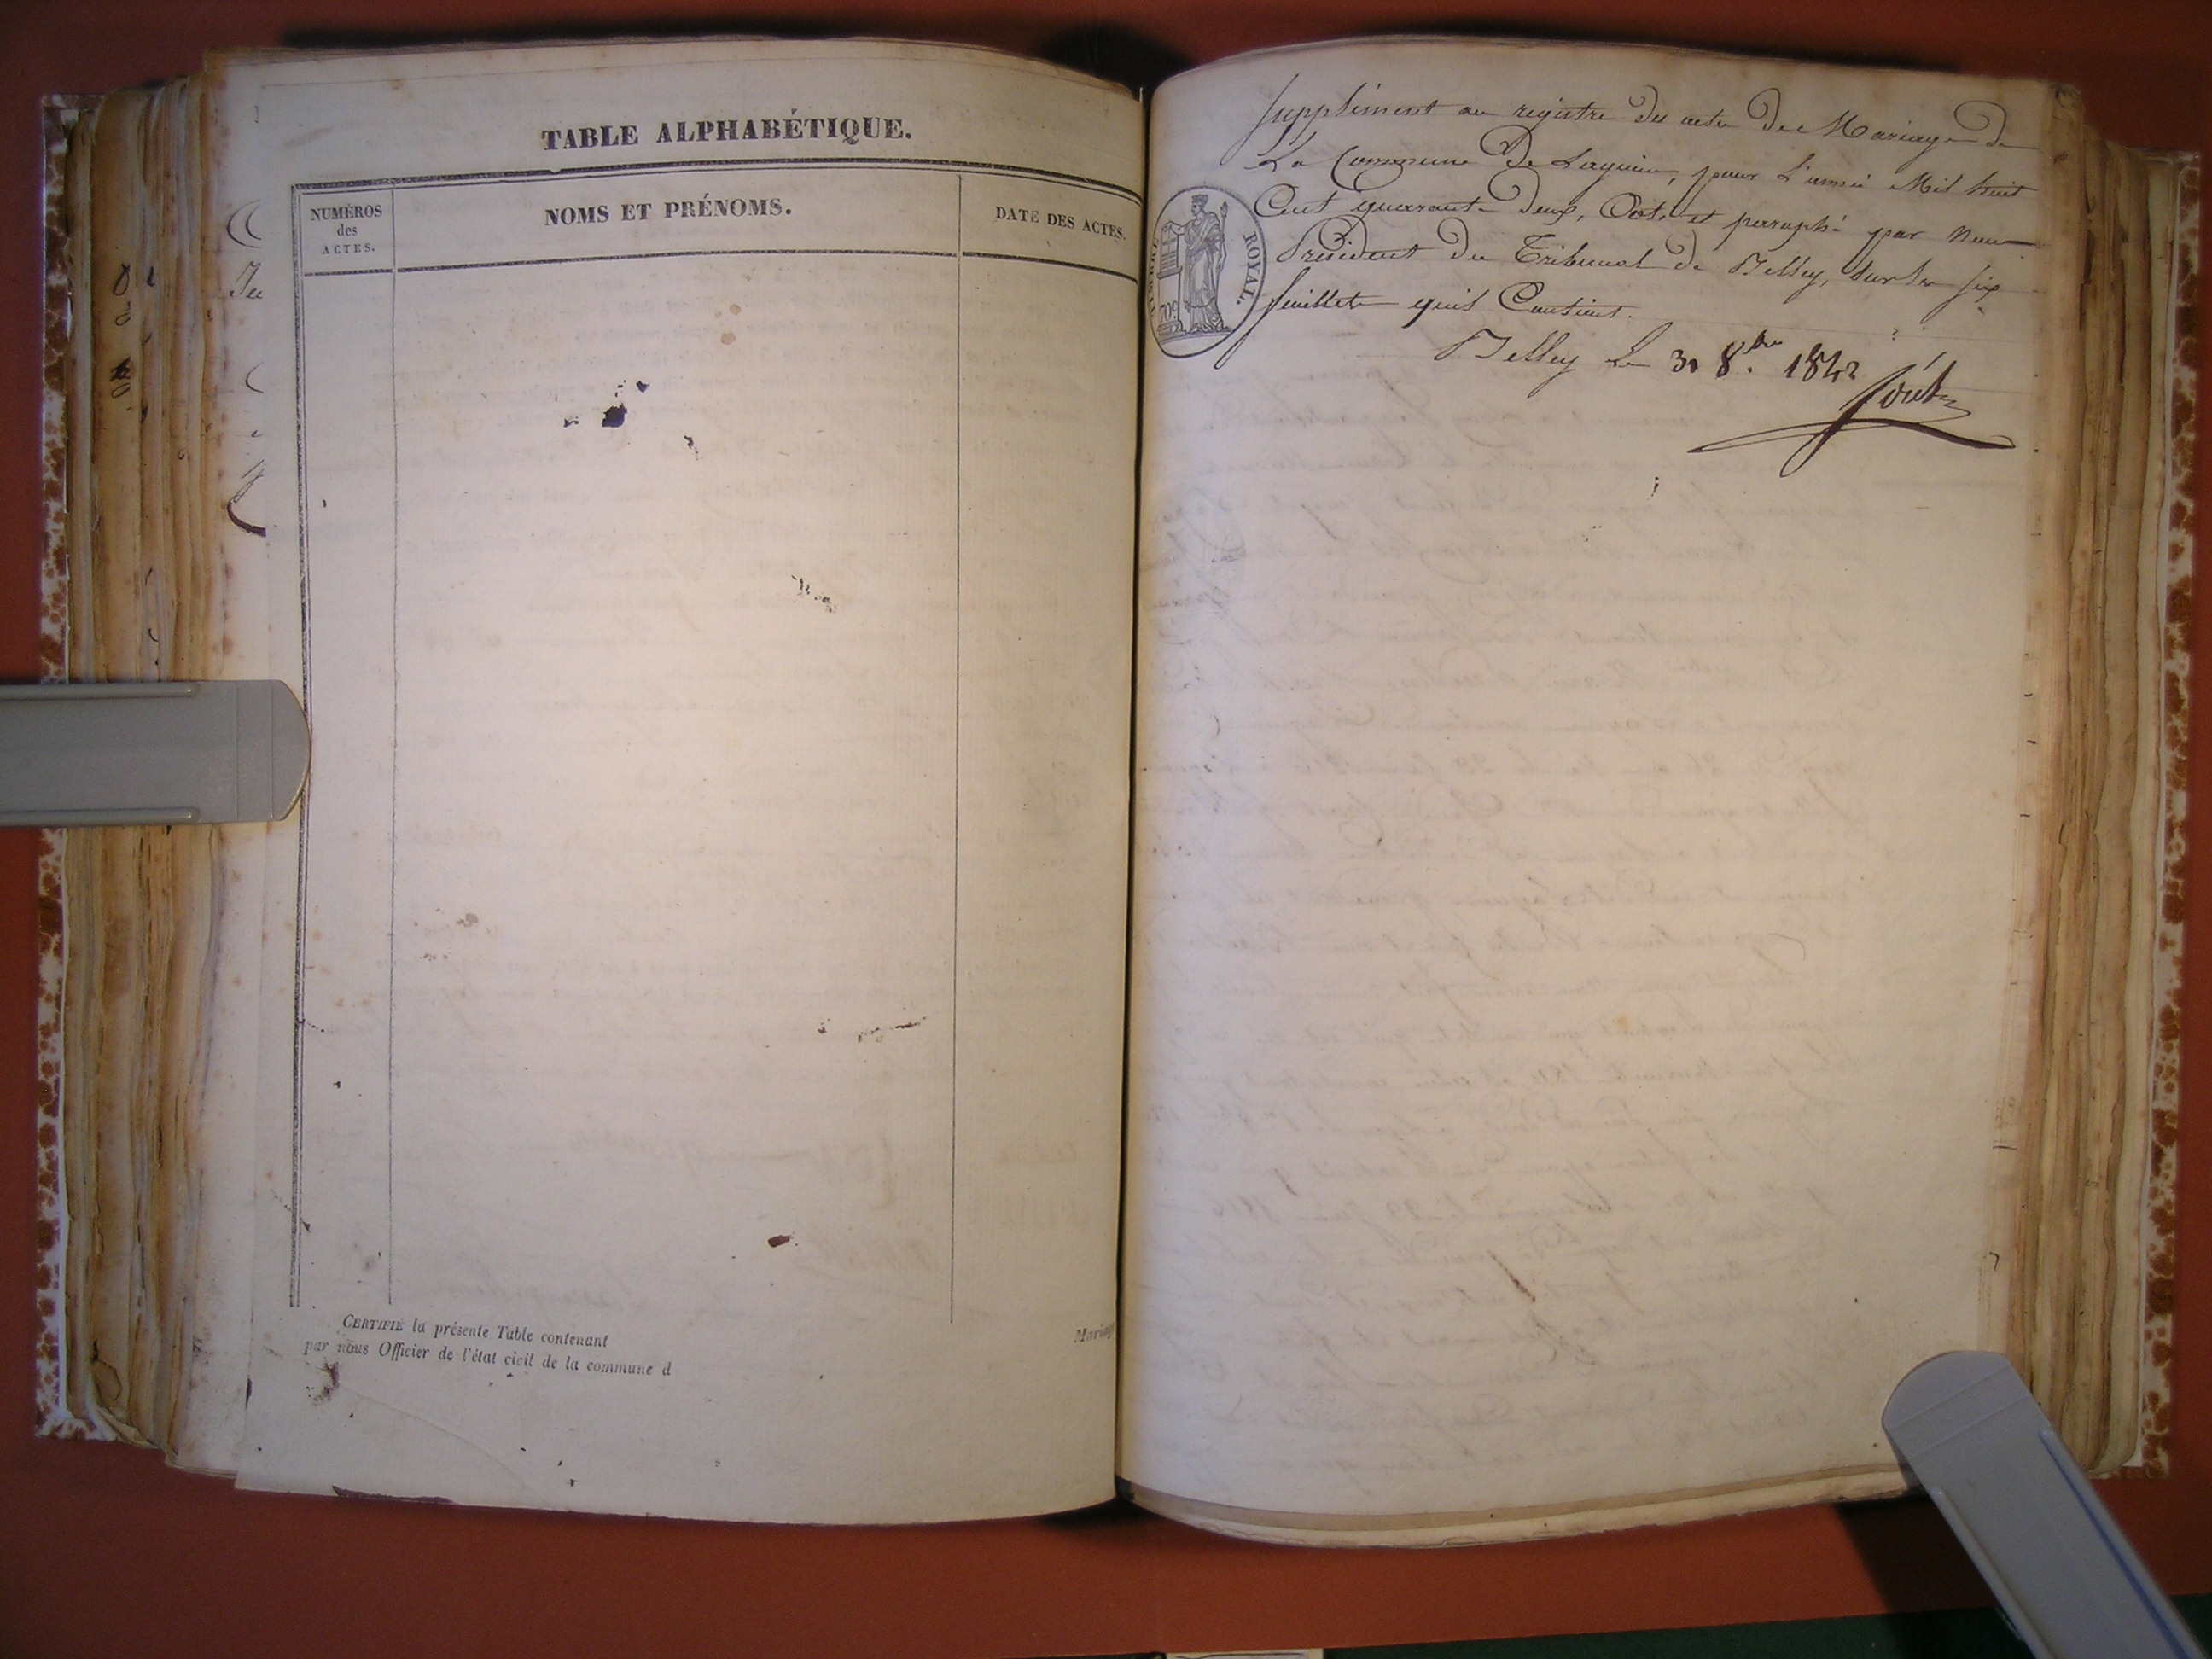 TABLE ALPHABÉTIQUE.
NUMÉROS
des
ACTES.
NOMS ET PRÉNOMS.
DATE DES ACTES.
CERTIFIÉ la présente Table contenant
par nous Officier de l'état civil de la commune d
Mariag
Supplément au registre des actes de Mariage de
La Commune De Lagnieu, pour L'année Mil huit
Cent quarante Deux, Coté et paraphé par Nous
Président du Tribunal de Belley, sur les six
feuillets quil Contient.
Belley Le 31 8.bre 1842
TIMBRE ROYAL.
70c